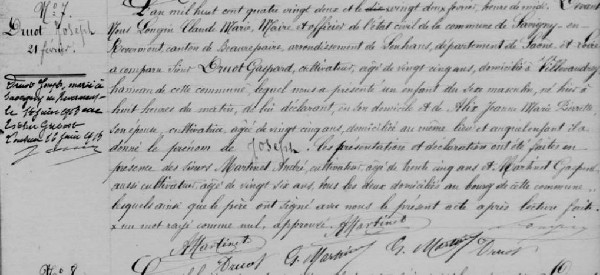 N° 7
Druot Joseph
21 février
Druot Joseph, marié à
Savigny en Revermont
le
L'an mil huit cent quatre vingt deux et le vingt deux février, heure de midi, Devant
Nous Longin Claude Marie, Maire et officier de l'état civil de la commune de Savigny-en-
Revermont, canton de Beaurepaire, arrondissement de Louhans, département de Saône et Loire
a comparu Sieur Druot Gaspard, cultivateur, âgé de vingt cinq ans, domicilié à
hameau de cette commune, lequel nous a présenté un enfant du sexe masculin, né hier à
huit heures du matin, de lui déclarant, en son domicile et de Alix Jeanne Marie
son épouse, cultivatrice, âgée de vingt cinq ans, domiciliée au même lieu et auquel enfant il a
donné le prénom de Joseph. Les présentation et déclaration ont été faites en
présence des Sieurs Martinet André, cultivateur, âgé de trente cinq ans et Martinet Gaspard
aussi cultivateur, âgé de vingt six ans, tous les deux domiciliés au bourg de cette commune
lesquels ainsi que le père ont signé avec nous le présent acte après lecture faite.
un mot rayé comme nul, approuvé. A Martinet
A Martinet Druot G. Martinet Druot
N° 8